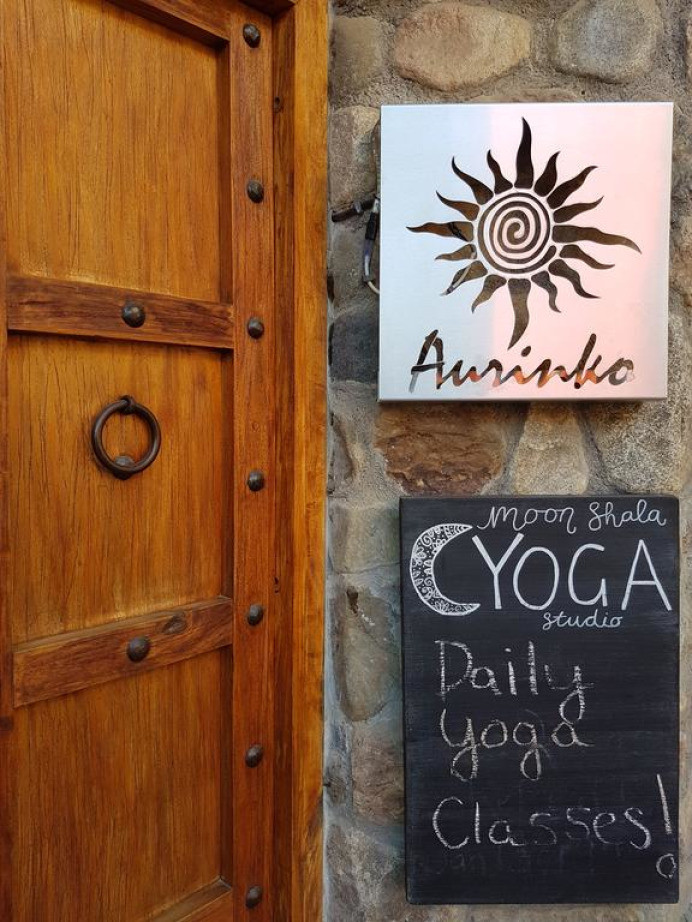 Aurinko
Moon Shala
YOGA
studio
Daily
Yoga
Classes!